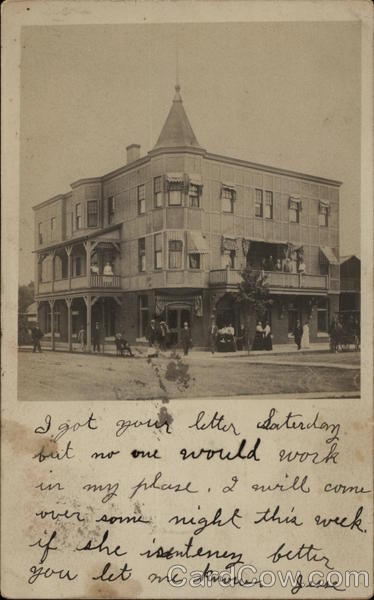 I got your letter Saterday
but no one would work
in my plase. I will come
over some night this week.
if she isenteney better
you let me know Jese
CardCow.com